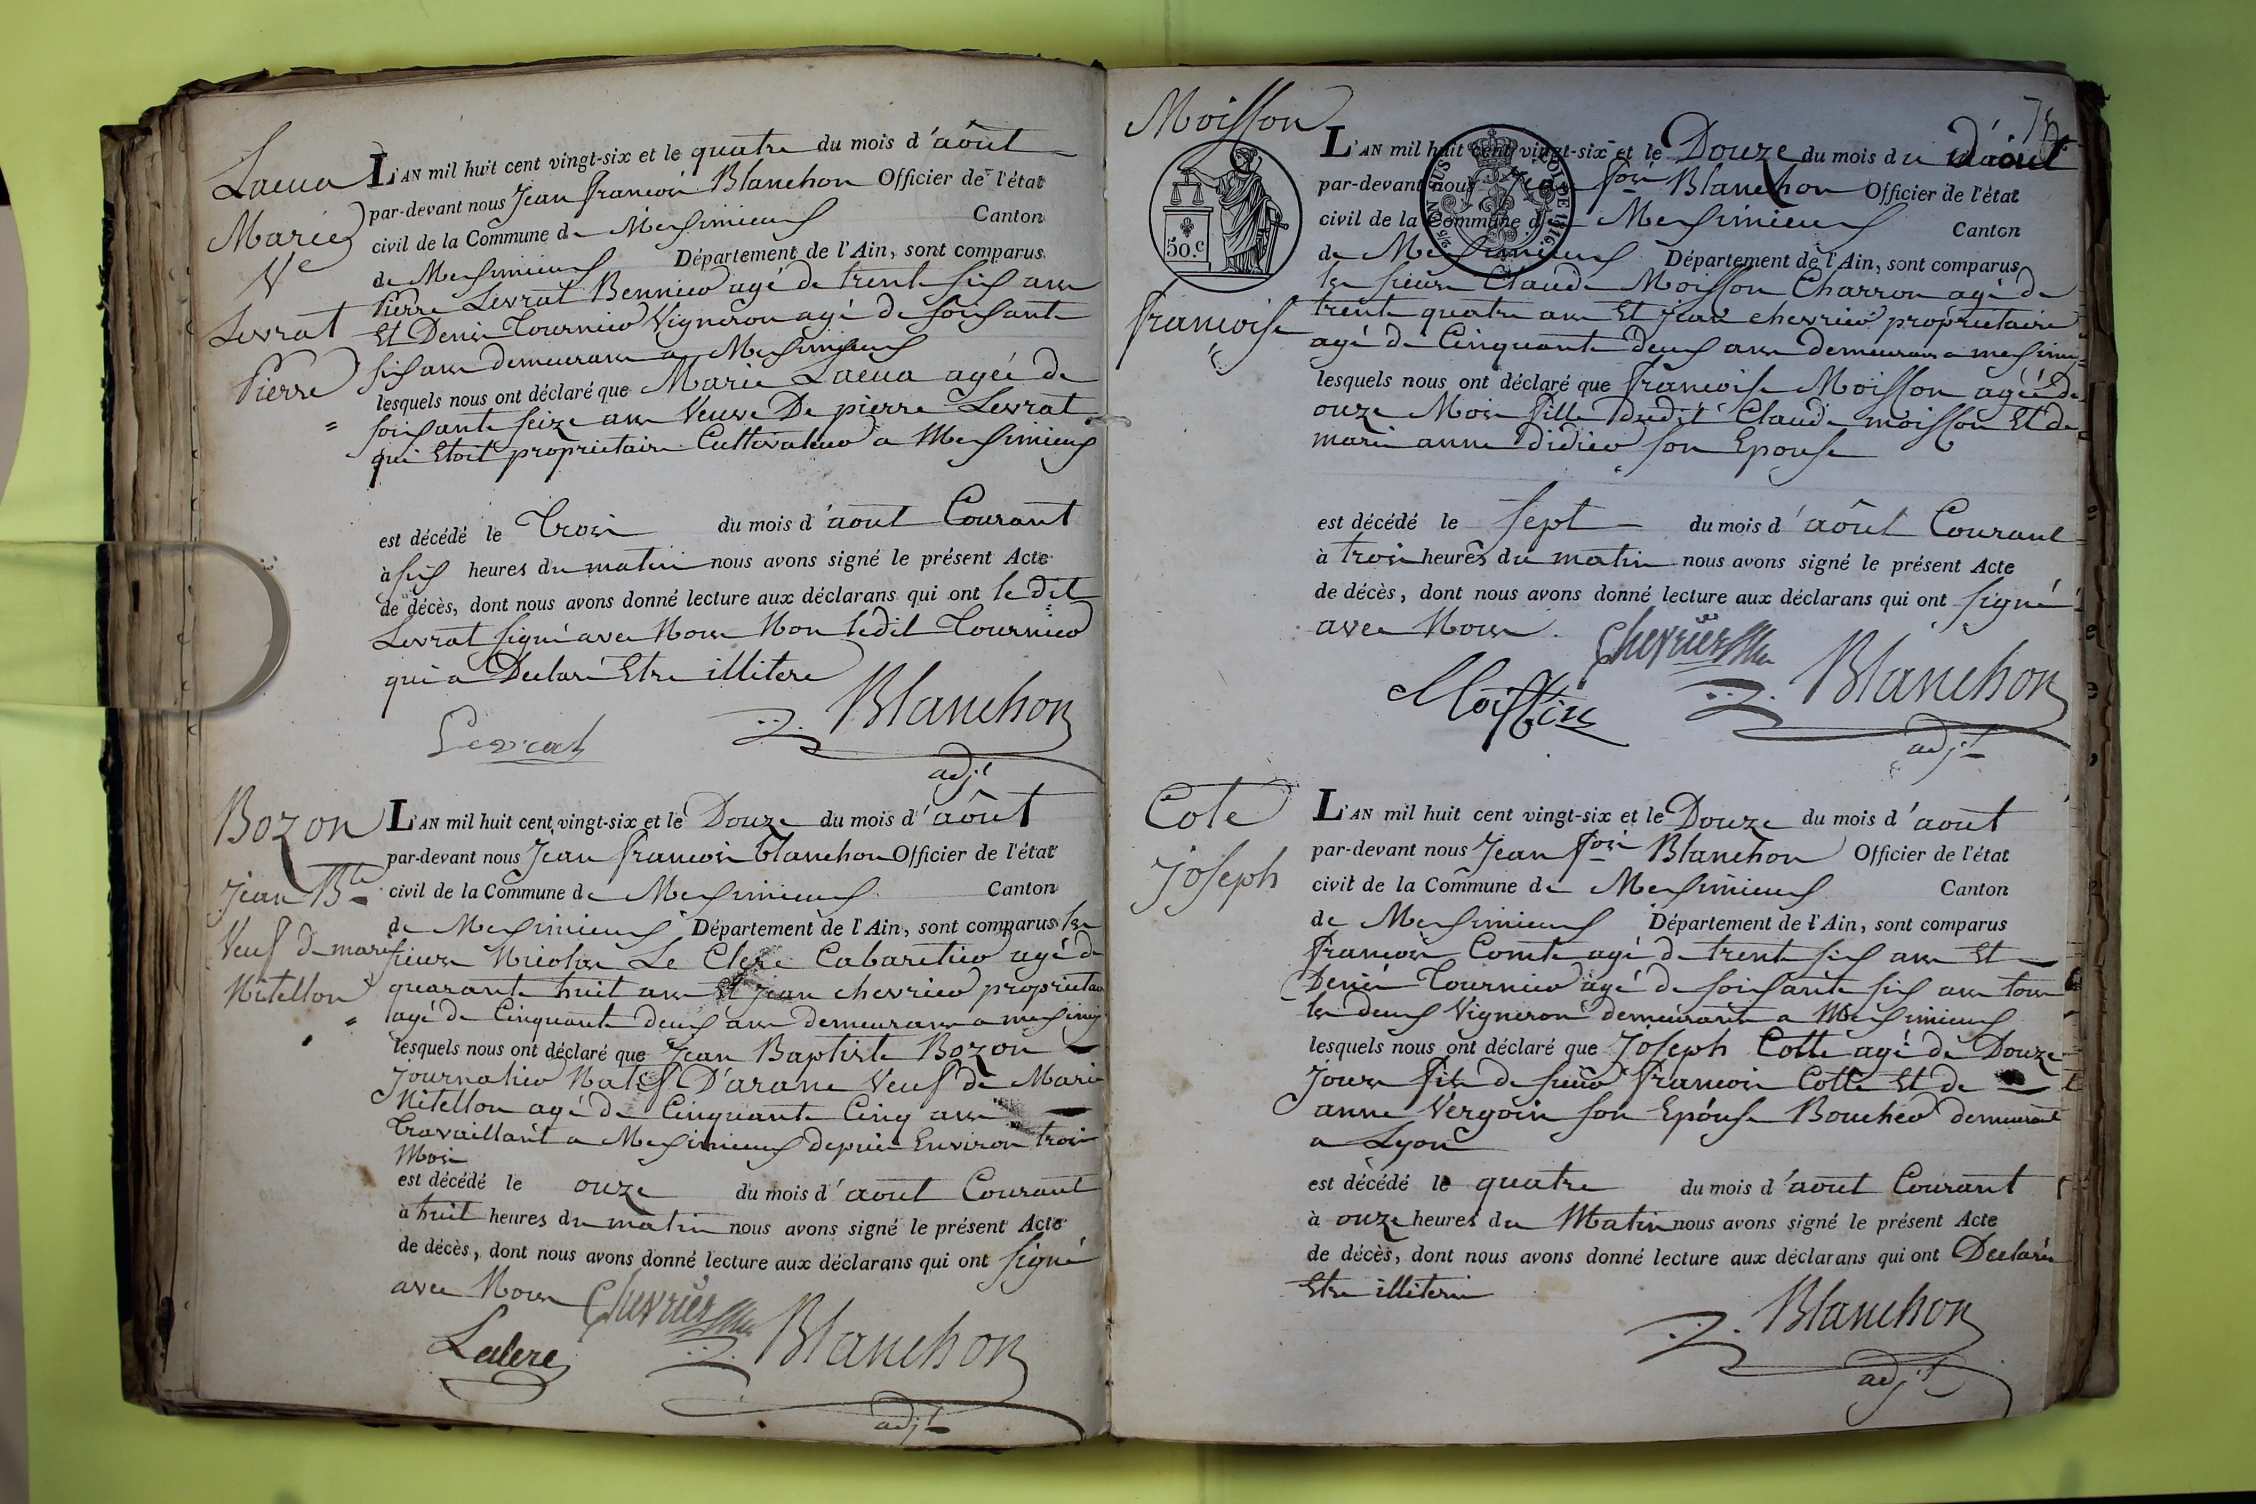 Lacua
Marie
Ve
Levrat
Pierre
L'AN mil huit cent vingt-six et le quatre du mois d'août
par-devant nous Jean françois Blanchon Officier de l'état
civil de la Commune de Messimieux Canton
de Messimieux Département de l'Ain, sont comparus
Pierre Levrat agé de trente six ans
Et Denis Tournier Vigneron agé de soisante
six ans demeurans a Messimieux
lesquels nous ont déclaré que Marie Lacua agée de
soisante seize ans Veuve De pierre Levrat
qui Etoit proprietaire Cultivateur a Messimieux
est décédé le Trois du mois d'aout Courant
à six heures du matin nous avons signé le présent Acte
de décès, dont nous avons donné lecture aux déclarans qui ont le dit
Levrat signé avec Nous Non ledit Tournier
qui a Declaré Etre illitere
Levrat
Blanchon
adjt
Bozon
Jean Bte
Veuf de marie
Nitellon
L'AN mil huit cent vingt-six et le Douze du mois d'août
par-devant nous Jean françois blanchon Officier de l'état
civil de la Commune de Messimieux Canton
de Messimieux Département de l'Ain, sont comparus les
sieurs Nicolas Le Clerc Cabaretier agé de
quarante huit ans Et jean chevrier proprietaire
agé de Cinquante deux ans demeurans a messimi
lesquels nous ont déclaré que Jean Baptiste Bozon
journalier Natif D'arane Veuf de Marie
Nitellon agé de Cinquante Cinq ans
Travaillant a Messimieux depuis Environ trois
Mois
est décédé le onze du mois d'aout Courant
à huit heures du matin nous avons signé le présent Acte
de décès, dont nous avons donné lecture aux déclarans qui ont signé
avec Nous
Chevrier
Leclerc
Blanchon
adjt
75
Moisson
françoise
50.c
LOI DE 1816.
L'AN mil huit cent vingt-six et le Douze du mois du d'aout
par-devant nous Jean fois Blanchon Officier de l'état
civil de la Commune de Messimieux Canton
de Messimieux Département de l'Ain, sont comparus
les sieurs Claude Moisson Charron agé de
trente quatre ans Et jean chevrier proprietaire
agé de Cinquante deux ans demeurans a messimi
lesquels nous ont déclaré que françoise Moisson agée de
onze Mois fille dudit Claude moisson Et de
marie anne Didier son Epouse
est décédé le sept du mois d'août Courant
à trois heures du matin nous avons signé le présent Acte
de décès, dont nous avons donné lecture aux déclarans qui ont signé
avec Nous
Chevrier
Blanchon
adjt
Cote
joseph
L'AN mil huit cent vingt-six et le Douze du mois d'aout
par-devant nous Jean fois Blanchon Officier de l'état
civil de la Commune de Messimieux Canton
de Messimieux Département de l'Ain, sont comparus
françois Comte agé de trente six ans Et
Denis Tournier agé de soisante six ans tous
les deux Vigneron demeurants a Messimieux
lesquels nous ont déclaré que joseph Cotte agé de Douze
jours fils de sieur françois Cotte Et de
anne Vergoin son Epouse Boucher demeurant
a Lyon
est décédé le quatre du mois d'aout Courant
à onze heures du Matin nous avons signé le présent Acte
de décès, dont nous avons donné lecture aux déclarans qui ont Declarés
Etre illiteris
Blanchon
adjt